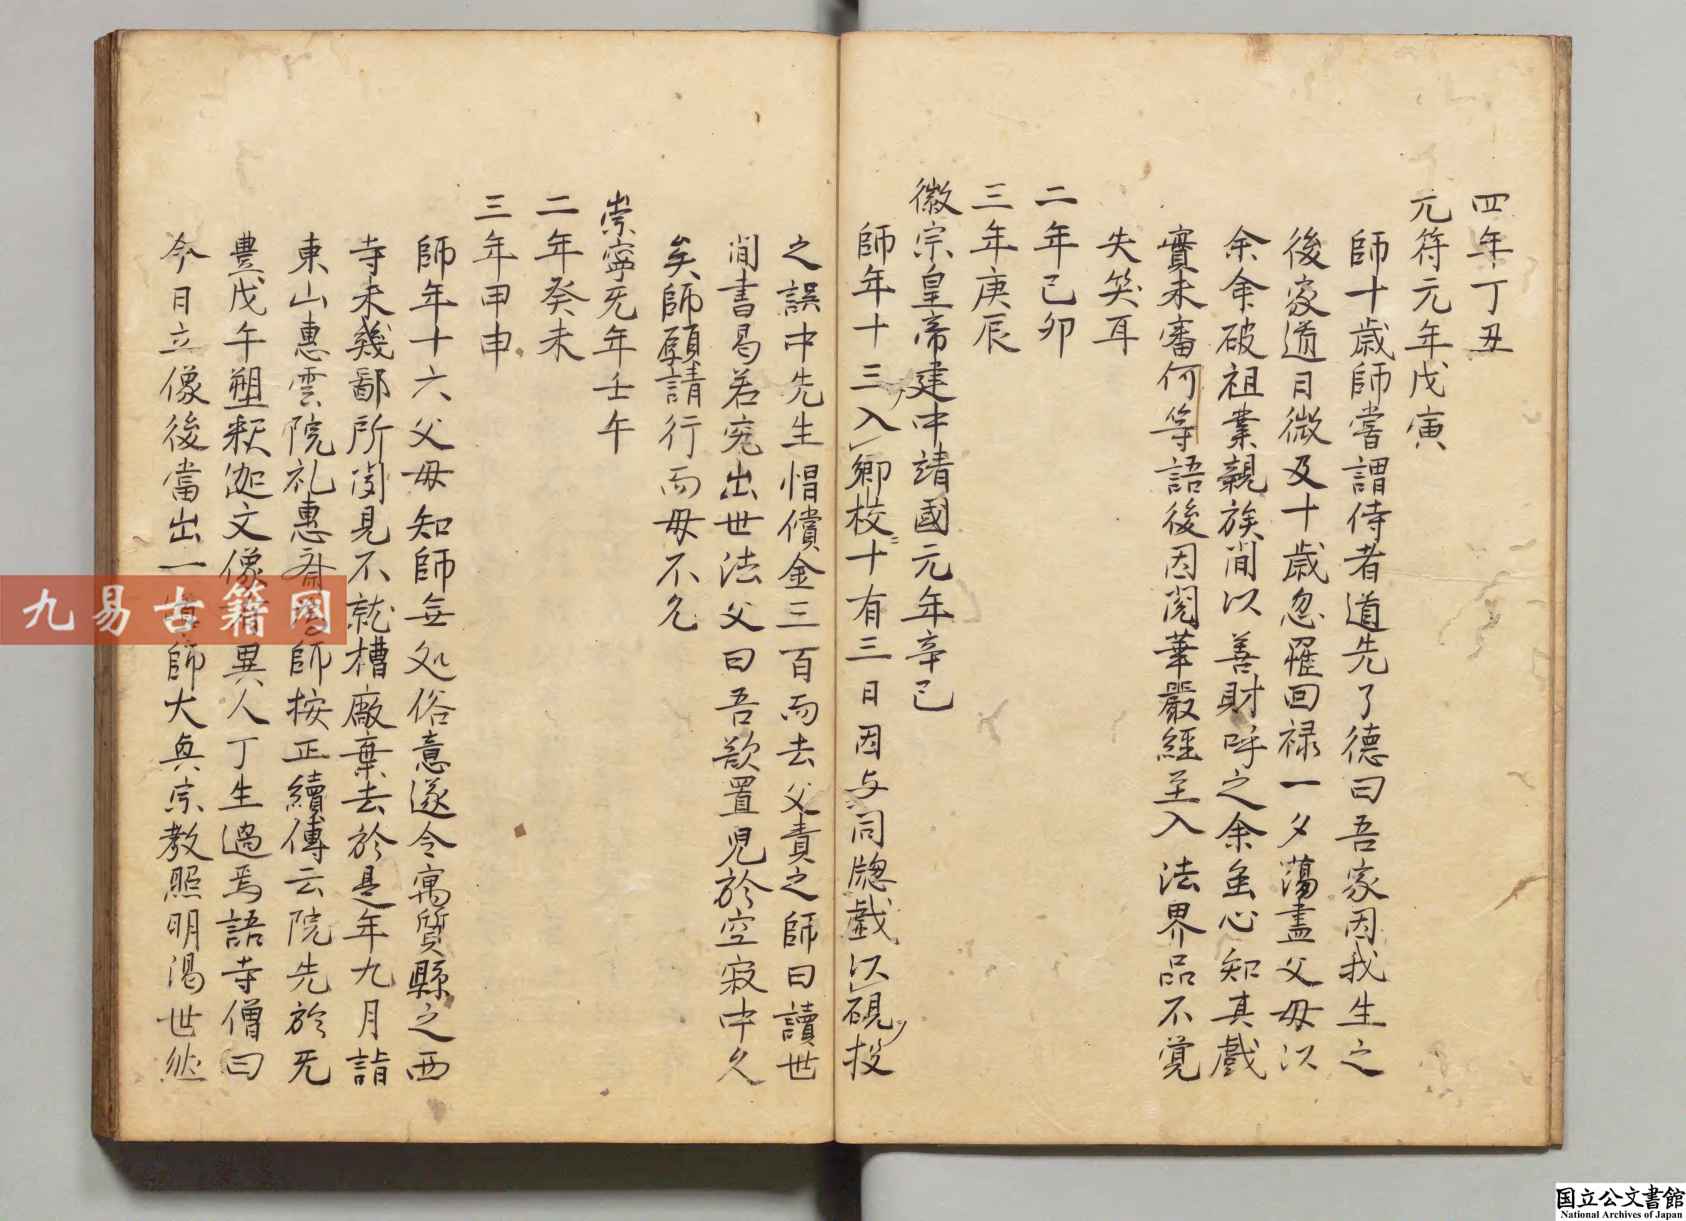 四年丁丑
元符元年戊寅
師十歳師嘗謂侍者道先了德曰吾家因我生之
後家道日微及十歳忽罹回禄一夕蕩盡父母以
余余破祖業親族間以善財呼之余虽心知其戲
實未審何等語後因閲華嚴經至入法界品不覚
失笑耳
二年己卯
三年庚辰
徽宗皇帝建中靖國元年辛巳
師年十三入郷校十有三日因与同牕戯以硯投
之誤中先生帽償金三百而去父責之師曰讀世
間書曷若究出世法父曰吾欲置児於空寂中久
矣師願請行而母不允
崇寧元年壬午
二年癸未
三年甲申
師年十六父母知師無処俗意遂令寓質縣之西
寺未幾鄙所聞見不就槽廠棄去於是年九月詣
東山惠雲院礼惠齊為師按正續傳云院先於元
豊戊午塑釈迦文像異人丁生過焉語寺僧曰
今日立像後當出一導師大興宗教照明濁世然
九易古籍网
国立公文書館
National Archives of Japan